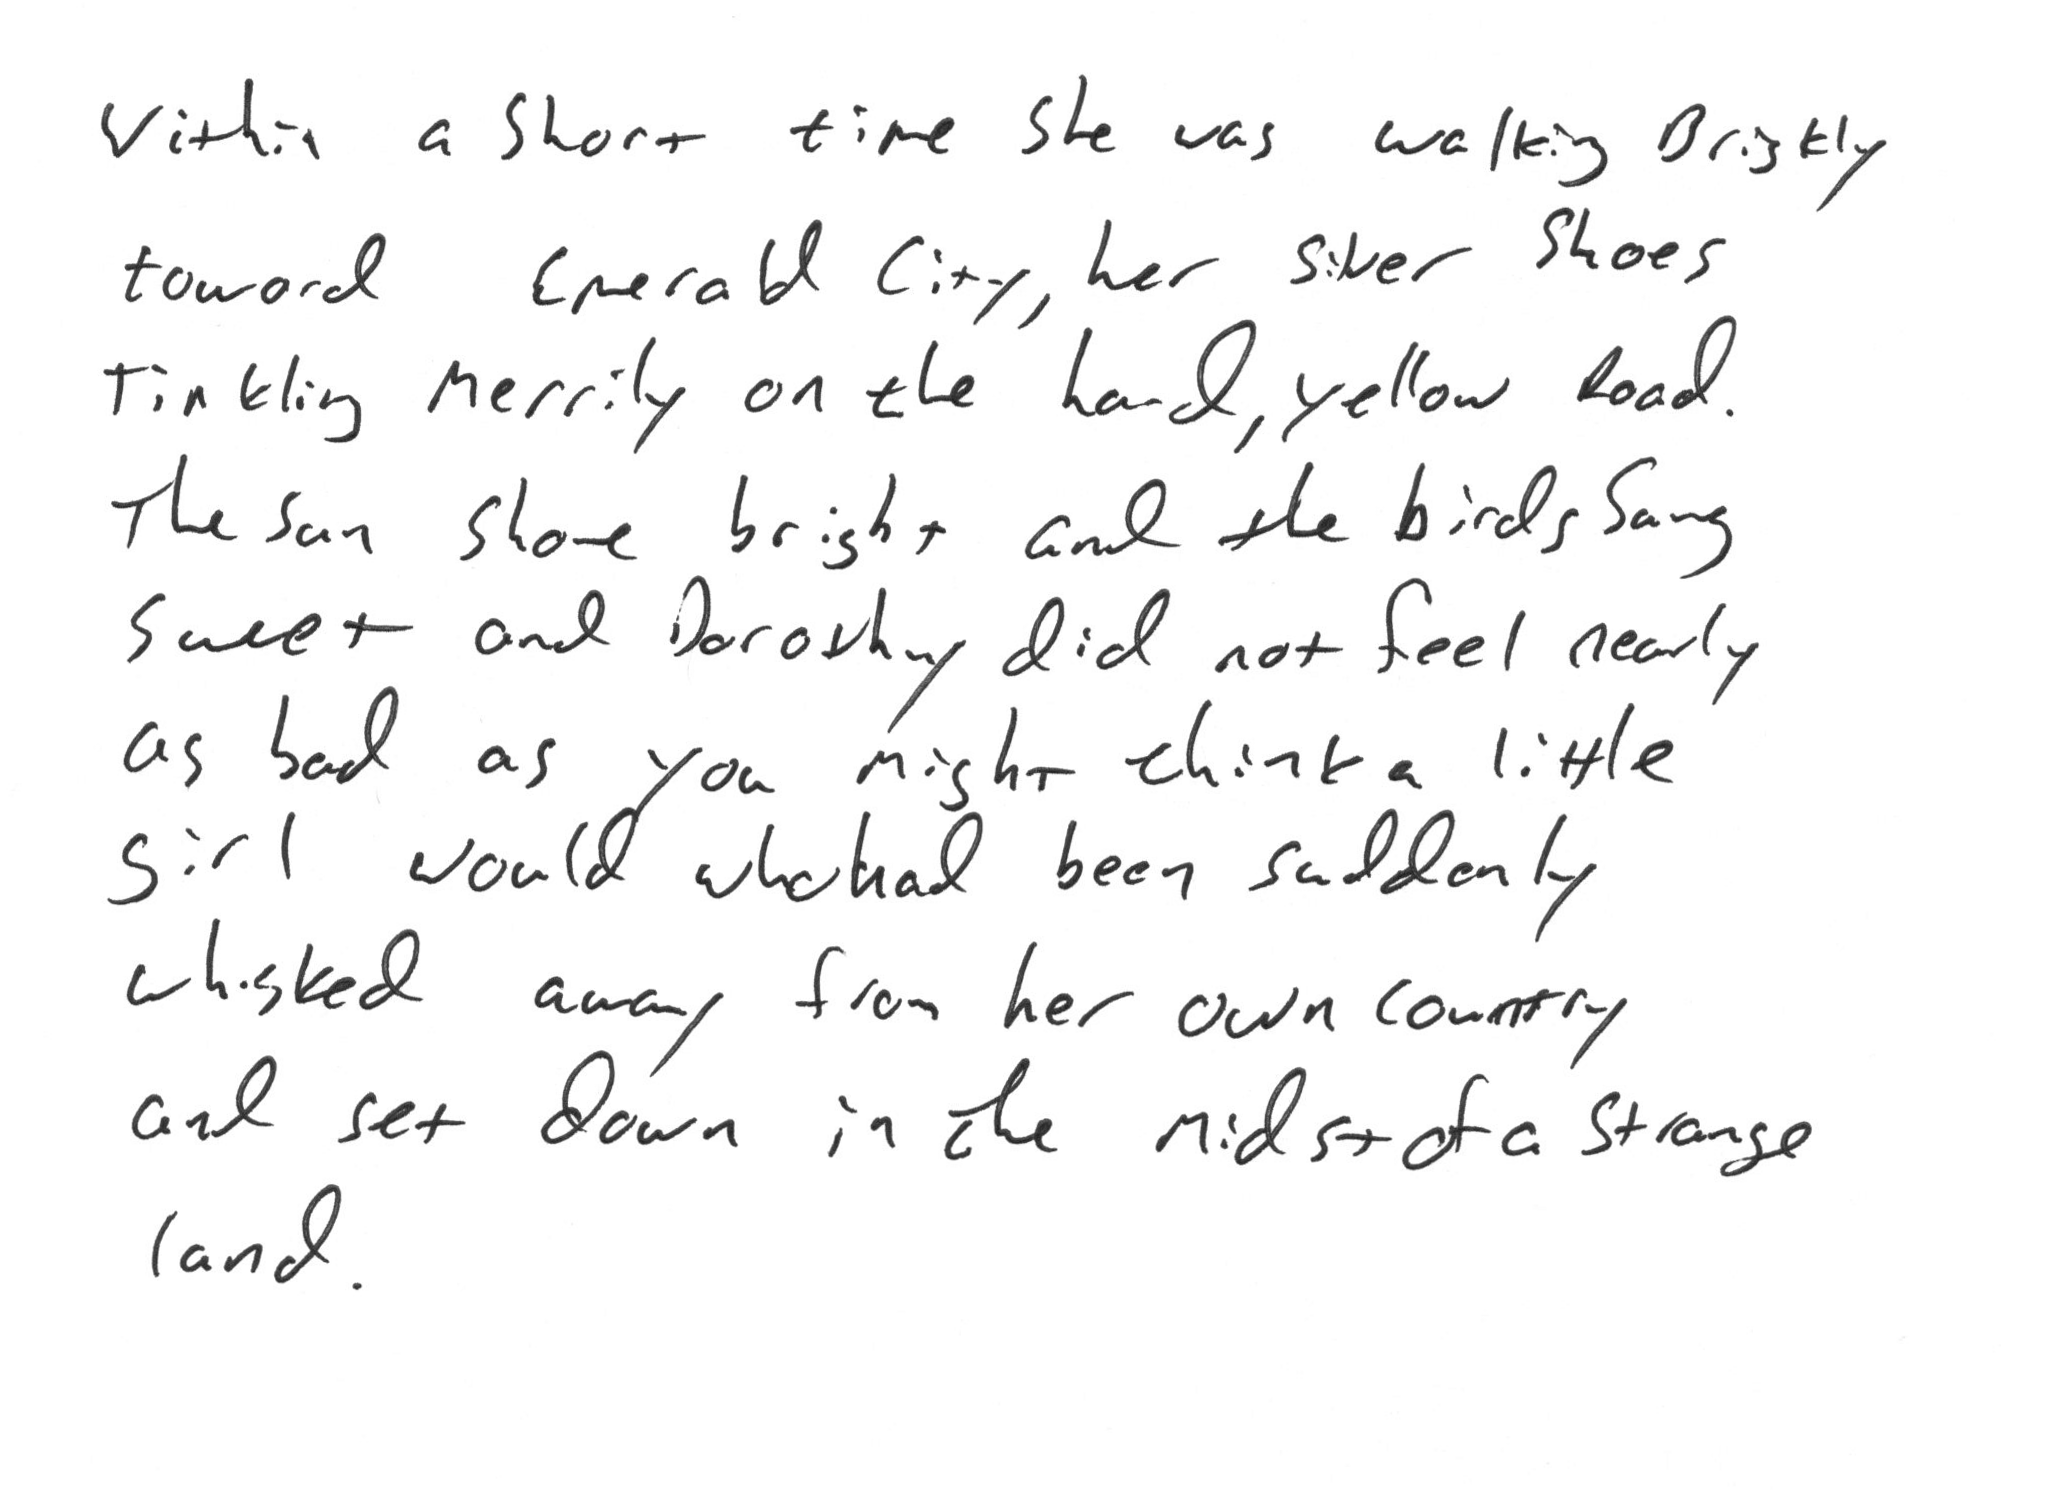 Within a Short time She was walking Briskly
toward Emerald City, her Silver Shoes
Tinkling Merrily on the hard, yellow Road.
The Sun Shone bright and the birds Sang
Sweet and Dorothy did not feel nearly
as bad as you might think a little
girl would who had been suddenly
whisked away from her own country
and set down in the midst of a Strange
land.